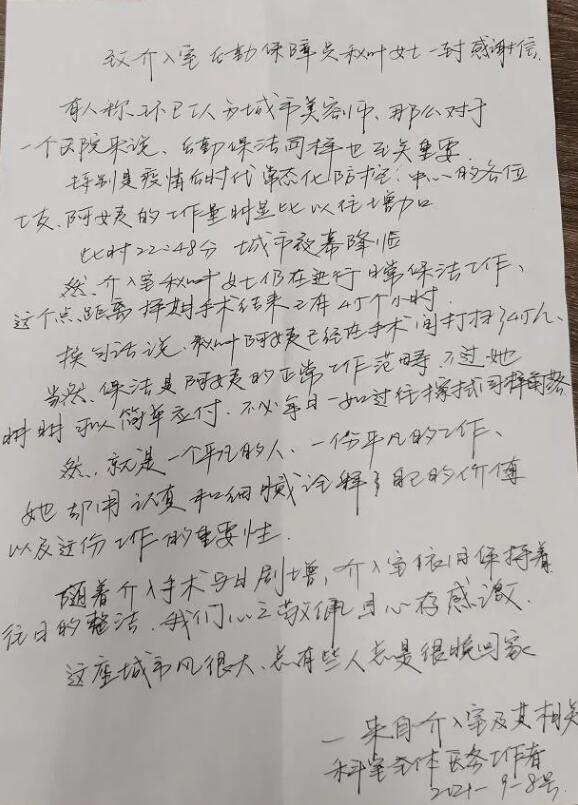 致介入室后勤保障员秋叶女士一封感谢信.
有人称,环卫工人为城市美容师,那么对于
一个医院来说、后勤保洁同样也至关重要.
特别是疫情后时代常态化防控:中心的各位
工友、阿姨的工作量明显比以往增加
此时22:48分 城市夜幕降临
然,介入室秋叶女士仍在进行日常保洁工作、
这个点,距离择期手术结束已有4个小时.
换句话说、秋叶阿姨已经在手术间打扫了4个h、
当然、保洁是阿姨的正常工作范畴、不过她
明明可以简单应付、不必每日一如过往擦拭每
然,就是一个平凡的人、一份平凡的工作、
她却用认真和细腻诠释了自己的价值
以及这份工作的重要性.
随着介入手术与日剧增,介入室依旧保持着
往日的整洁.我们心之敬佩且心存感激.
这座城市风很大、总有些人总是很晚回家
一来自介入室及其相关
科室全体医务工作者
2021-9-8号.